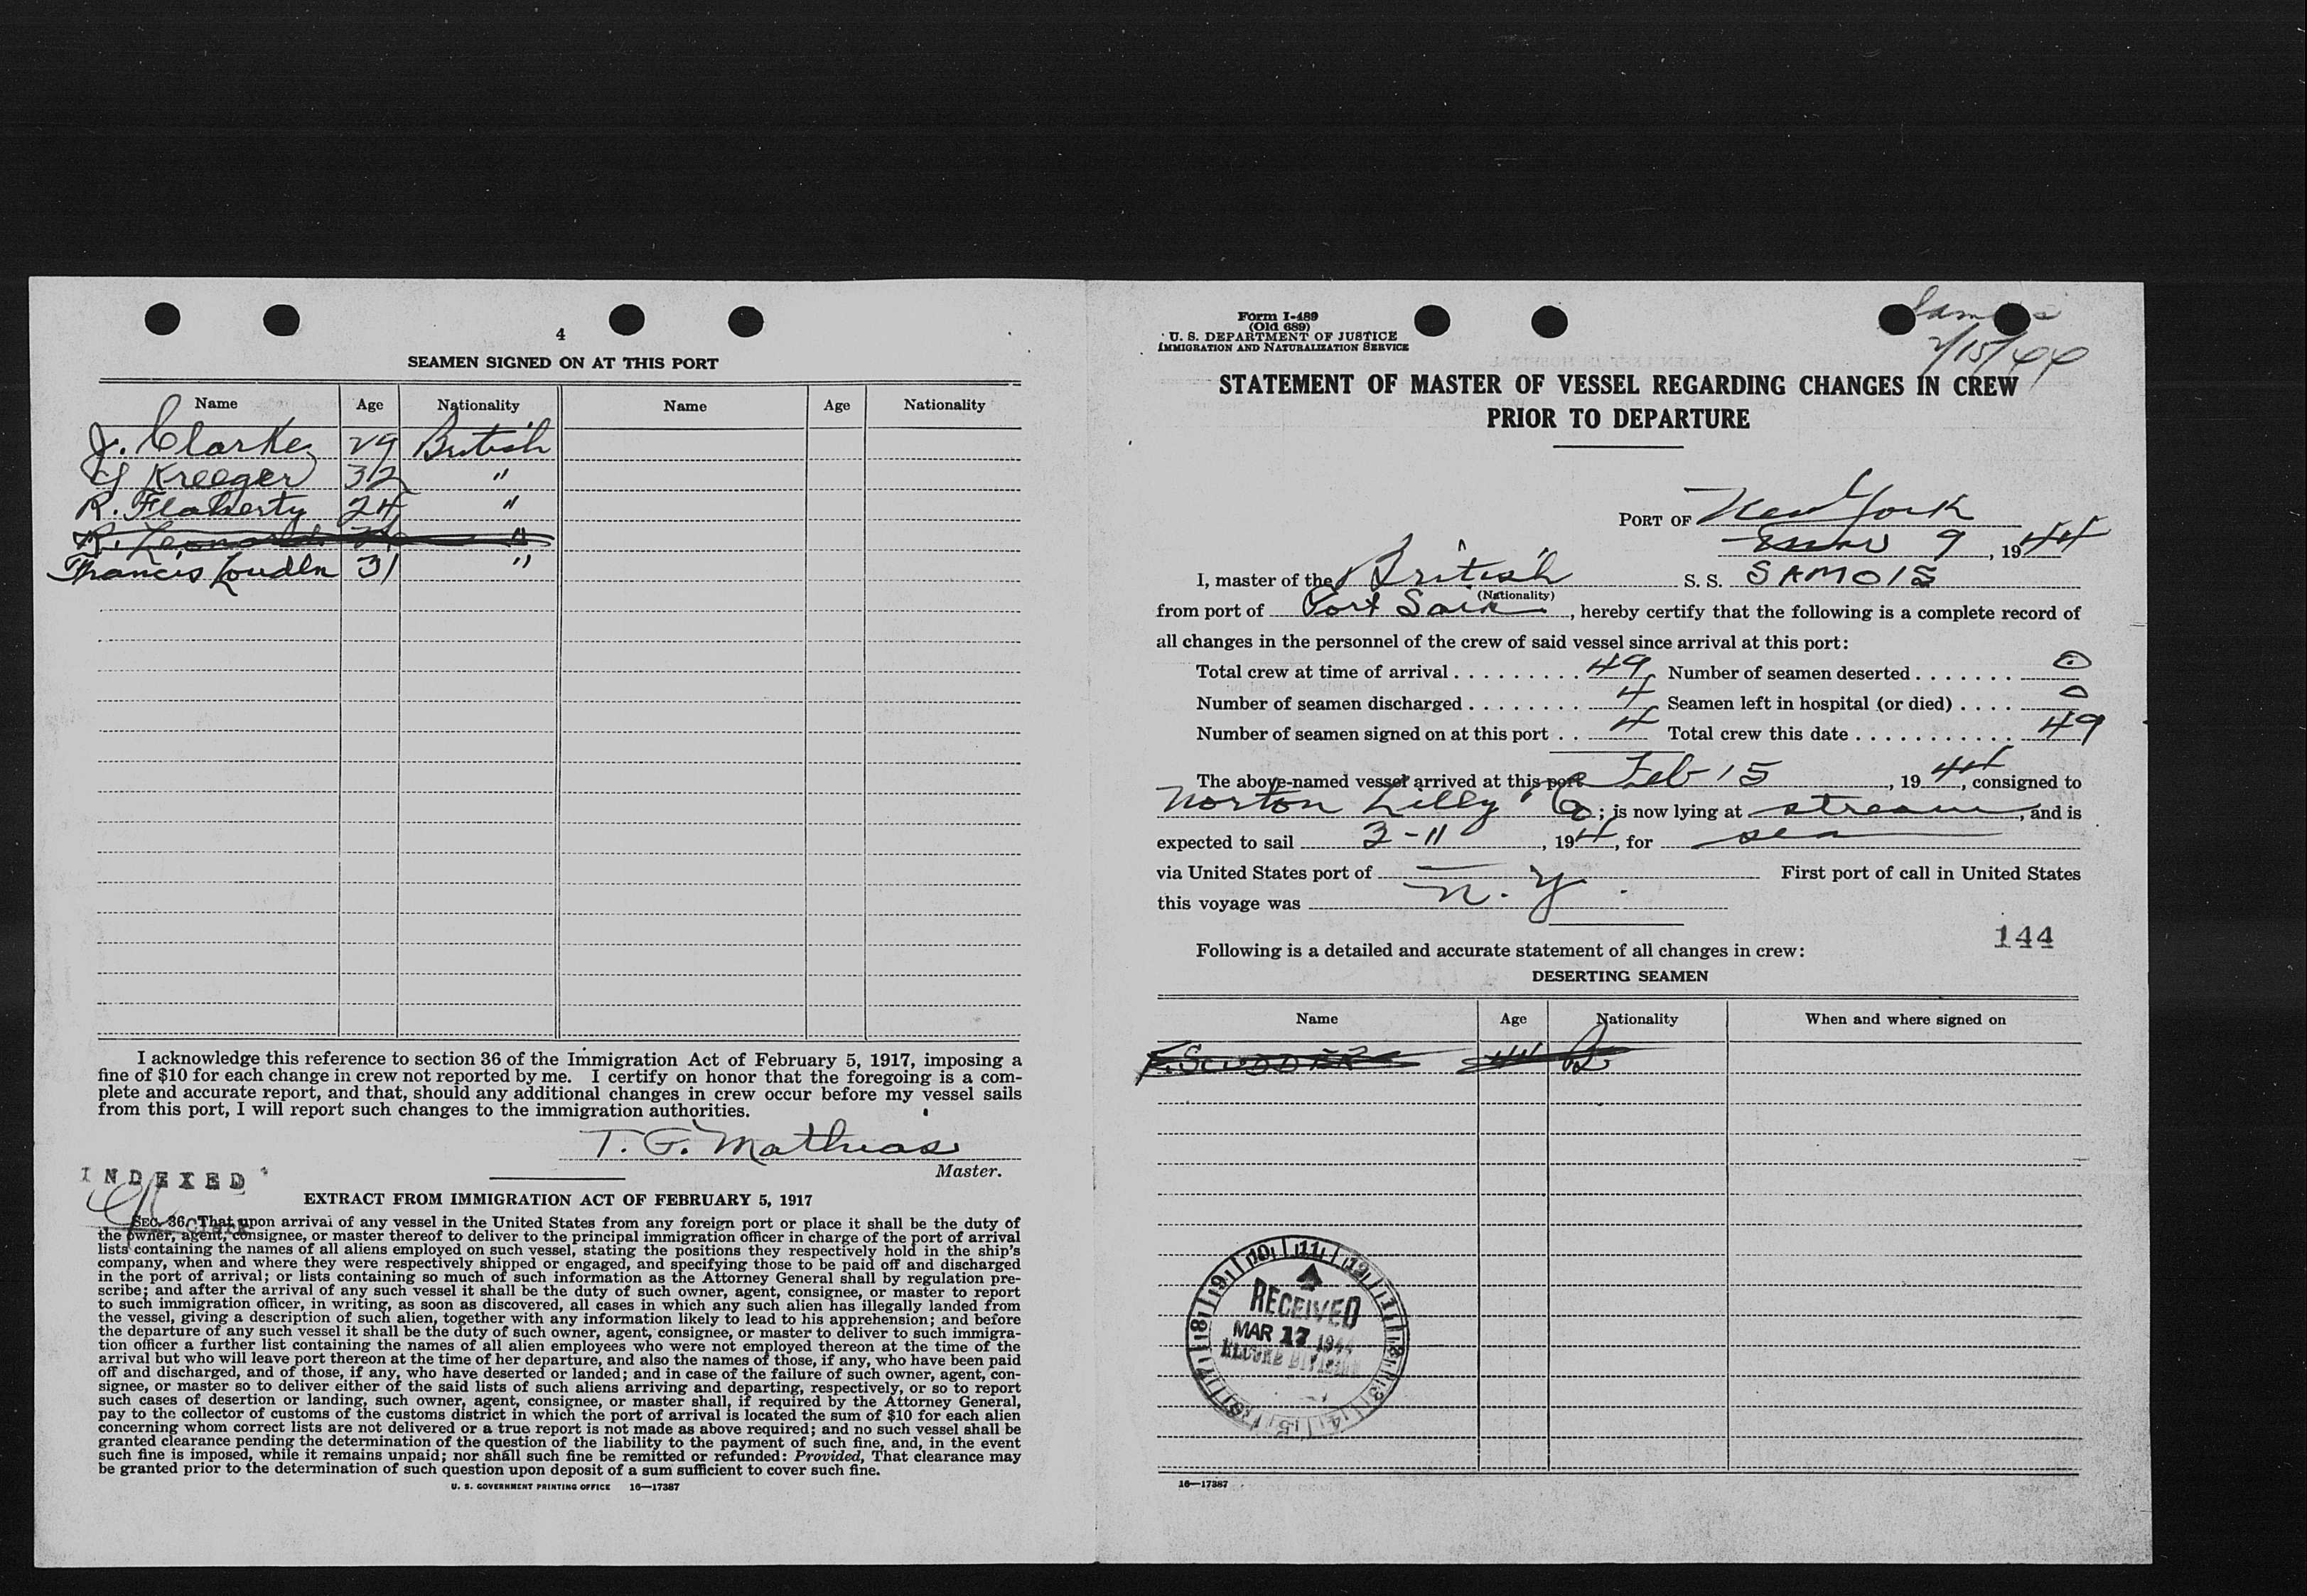 4
SEAMEN SIGNED ON AT THIS PORT
Name Age Nationality Name Age Nationality
J. Clarke 29 British
Kreeger 32 "
R. Flaherty 24 "
R. Leonard "
Francis Louden 31 "
I acknowledge this reference to section 36 of the Immigration Act of February 5, 1917, imposing a
fine of $10 for each change in crew not reported by me. I certify on honor that the foregoing is a com-
plete and accurate report, and that, should any additional changes in crew occur before my vessel sails
from this port, I will report such changes to the immigration authorities.
T. G. Mathias
Master.
INDEXED
Clerk
EXTRACT FROM IMMIGRATION ACT OF FEBRUARY 5, 1917
SEC. 36. That upon arrival of any vessel in the United States from any foreign port or place it shall be the duty of
the owner, agent, consignee, or master thereof to deliver to the principal immigration officer in charge of the port of arrival
lists containing the names of all aliens employed on such vessel, stating the positions they respectively hold in the ship's
company, when and where they were respectively shipped or engaged, and specifying those to be paid off and discharged
in the port of arrival; or lists containing so much of such information as the Attorney General shall by regulation pre-
scribe; and after the arrival of any such vessel it shall be the duty of such owner, agent, consignee, or master to report
to such immigration officer, in writing, as soon as discovered, all cases in which any such alien has illegally landed from
the vessel, giving a description of such alien, together with any information likely to lead to his apprehension; and before
the departure of any such vessel it shall be the duty of such owner, agent, consignee, or master to deliver to such immigra-
tion officer a further list containing the names of all alien employees who were not employed thereon at the time of the
arrival but who will leave port thereon at the time of her departure, and also the names of those, if any, who have been paid
off and discharged, and of those, if any, who have deserted or landed; and in case of the failure of such owner, agent, con-
signee, or master so to deliver either of the said lists of such aliens arriving and departing, respectively, or so to report
such cases of desertion or landing, such owner, agent, consignee, or master shall, if required by the Attorney General,
pay to the collector of customs of the customs district in which the port of arrival is located the sum of $10 for each alien
concerning whom correct lists are not delivered or a true report is not made as above required; and no such vessel shall be
granted clearance pending the determination of the question of the liability to the payment of such fine, and, in the event
such fine is imposed, while it remains unpaid; nor shall such fine be remitted or refunded: Provided, That clearance may
be granted prior to the determination of such question upon deposit of a sum sufficient to cover such fine.
U. S. GOVERNMENT PRINTING OFFICE 16—17387
Form I-489
(Old 689)
U. S. DEPARTMENT OF JUSTICE
IMMIGRATION AND NATURALIZATION SERVICE
2/15/44
STATEMENT OF MASTER OF VESSEL REGARDING CHANGES IN CREW
PRIOR TO DEPARTURE
PORT OF New York
9, 1944
I, master of the British S. S. SAMOIS
(Nationality)
from port of Port Said, hereby certify that the following is a complete record of
all changes in the personnel of the crew of said vessel since arrival at this port:
Total crew at time of arrival . . . . . . . . . 49 Number of seamen deserted . . . . . . . 0
Number of seamen discharged . . . . . . . . 4 Seamen left in hospital (or died) . . . . 0
Number of seamen signed on at this port . . 4 Total crew this date . . . . . . . . . . . 49
The above-named vessel arrived at this port Feb 15, 1944, consigned to
Norton Lilly Co; is now lying at stream, and is
expected to sail 3-11, 1944, for sea
via United States port of — First port of call in United States
this voyage was N.Y.
144
Following is a detailed and accurate statement of all changes in crew:
DESERTING SEAMEN
Name Age Nationality When and where signed on
RECEIVED
MAR 17 1944
RECORD DIVISION
16—17387